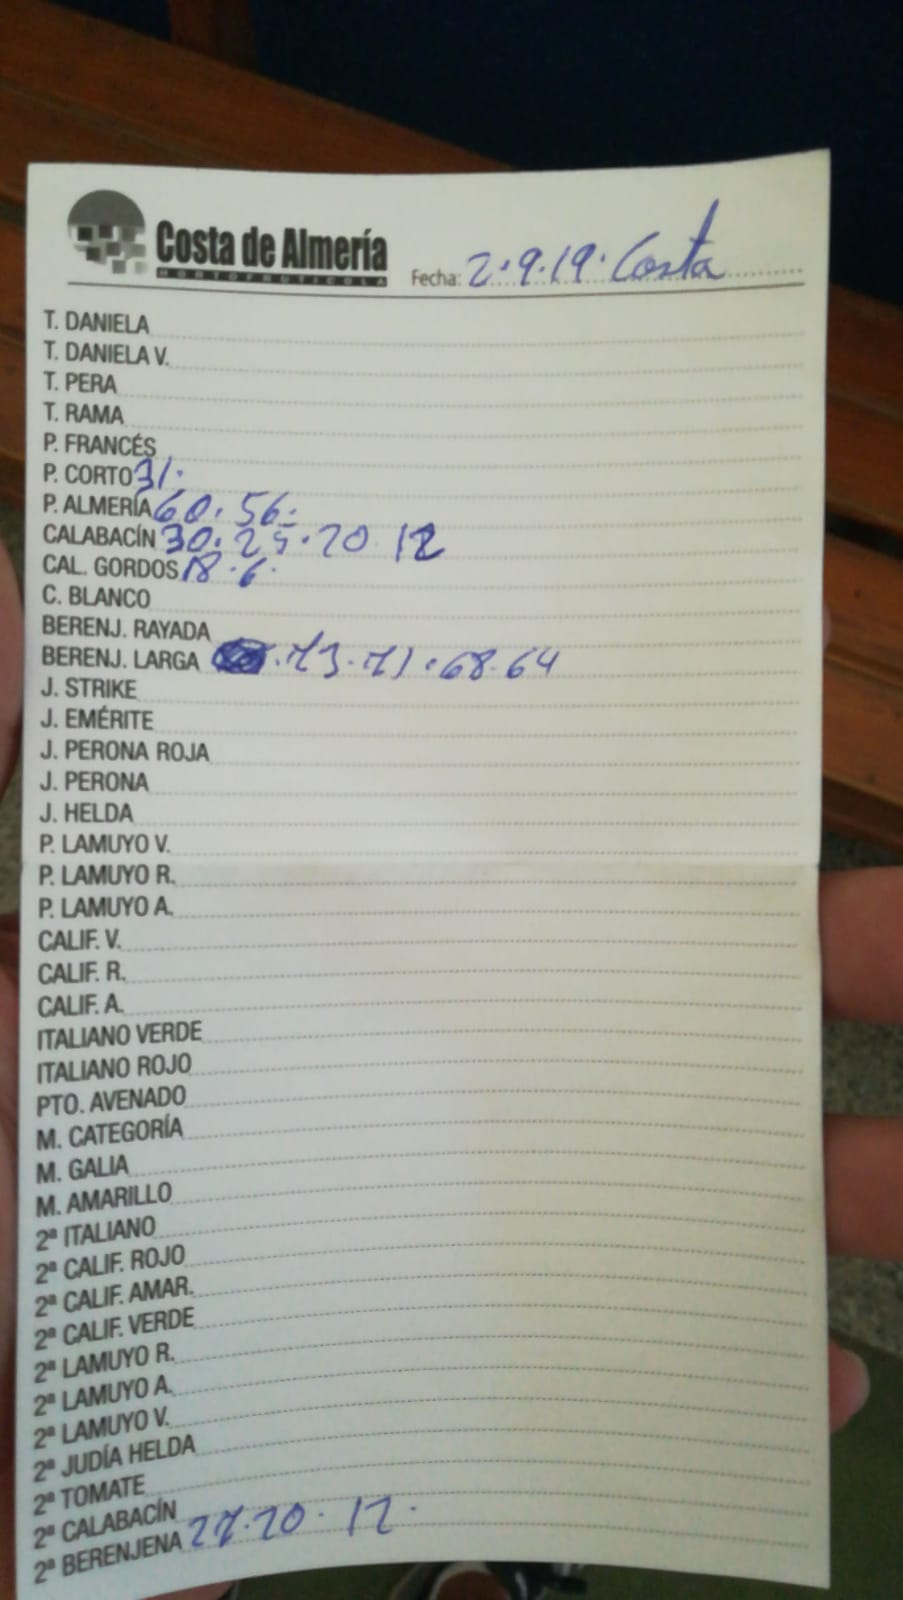 Costa de Almería
HORTOFRUTICOLA
Fecha: 2.9.19. Costa
T. DANIELA
T. DANIELA V.
T. PERA
T. RAMA
P. FRANCÉS
P. CORTO 31.
P. ALMERÍA 60. 56.
CALABACÍN 30. 25. 20 12
CAL. GORDOS 18. 6.
C. BLANCO
BERENJ. RAYADA
BERENJ. LARGA . 73. 71. 68. 64
J. STRIKE
J. EMÉRITE
J. PERONA ROJA
J. PERONA
J. HELDA
P. LAMUYO V.
P. LAMUYO R.
P. LAMUYO A.
CALIF. V.
CALIF. R.
CALIF. A.
ITALIANO VERDE
ITALIANO ROJO
PTO. AVENADO
M. CATEGORÍA
M. GALIA
M. AMARILLO
2ª ITALIANO
2ª CALIF. ROJO
2ª CALIF. AMAR.
2ª CALIF. VERDE
2ª LAMUYO R.
2ª LAMUYO A.
2ª LAMUYO V.
2ª JUDÍA HELDA
2ª TOMATE
2ª CALABACÍN
2ª BERENJENA 27. 20. 12.